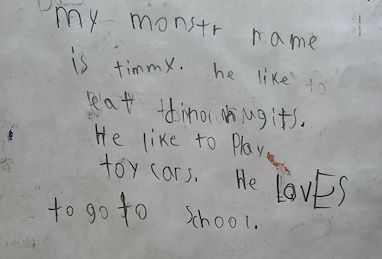 my monstr name
is timmy. he like to
eat dinoinugits.
He like to Play
toy cars. He LOVES
to go to School.